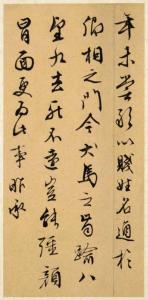 年未嘗敢以賤姓名通於
卿相之門今犬馬之齒踰八
望九去死不遠豈能強顏
冒面更為此事昨承